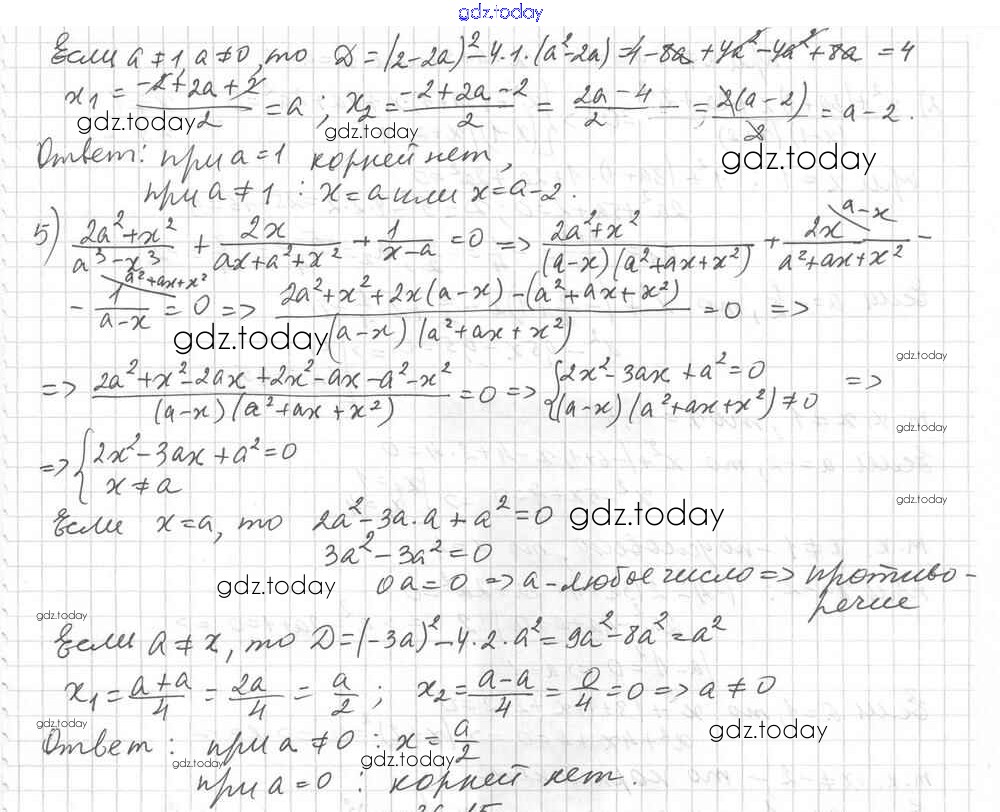 gdz.today
Если a ≠ 1, a ≠ 0, то D = (2-2a)² - 4·1·(a²-2a) = 4 - 8a + 4a² - 4a² + 8a = 4
x₁ = (-2+2a+2)/2 = a; x₂ = (-2+2a-2)/2 = (2a-4)/2 = 2(a-2)/2 = a-2.
gdz.today gdz.today gdz.today
Ответ: при a = 1 корней нет,
при a ≠ 1 : x = a или x = a-2.
5) (2a²+x²)/(a³-x³) + 2x/(ax+a²+x²) + 1/(x-a) = 0 => (2a²+x²)/((a-x)(a²+ax+x²)) + 2x/(a²+ax+x²) -
a-x
a²+ax+x²
- 1/(a-x) = 0 => (2a²+x²+2x(a-x)-(a²+ax+x²))/((a-x)(a²+ax+x²)) = 0 =>
gdz.today
gdz.today
=> (2a²+x²-2ax+2x²-ax-a²-x²)/((a-x)(a²+ax+x²)) = 0 => { 2x²-3ax+a² = 0
(a-x)(a²+ax+x²) ≠ 0 =>
gdz.today
=> { 2x²-3ax+a² = 0
x ≠ a
gdz.today
Если x = a, то 2a²-3a·a+a² = 0 gdz.today
3a²-3a² = 0
gdz.today 0a = 0 => a - любое число => противо-
речие
gdz.today
Если a ≠ x, то D = (-3a)² - 4·2·a² = 9a²-8a² = a²
x₁ = (a+a)/4 = 2a/4 = a/2; x₂ = (a-a)/4 = 0/4 = 0 => a ≠ 0
gdz.today gdz.today
Ответ: при a ≠ 0 : x = a/2
gdz.today gdz.today
при a = 0 : корней нет.